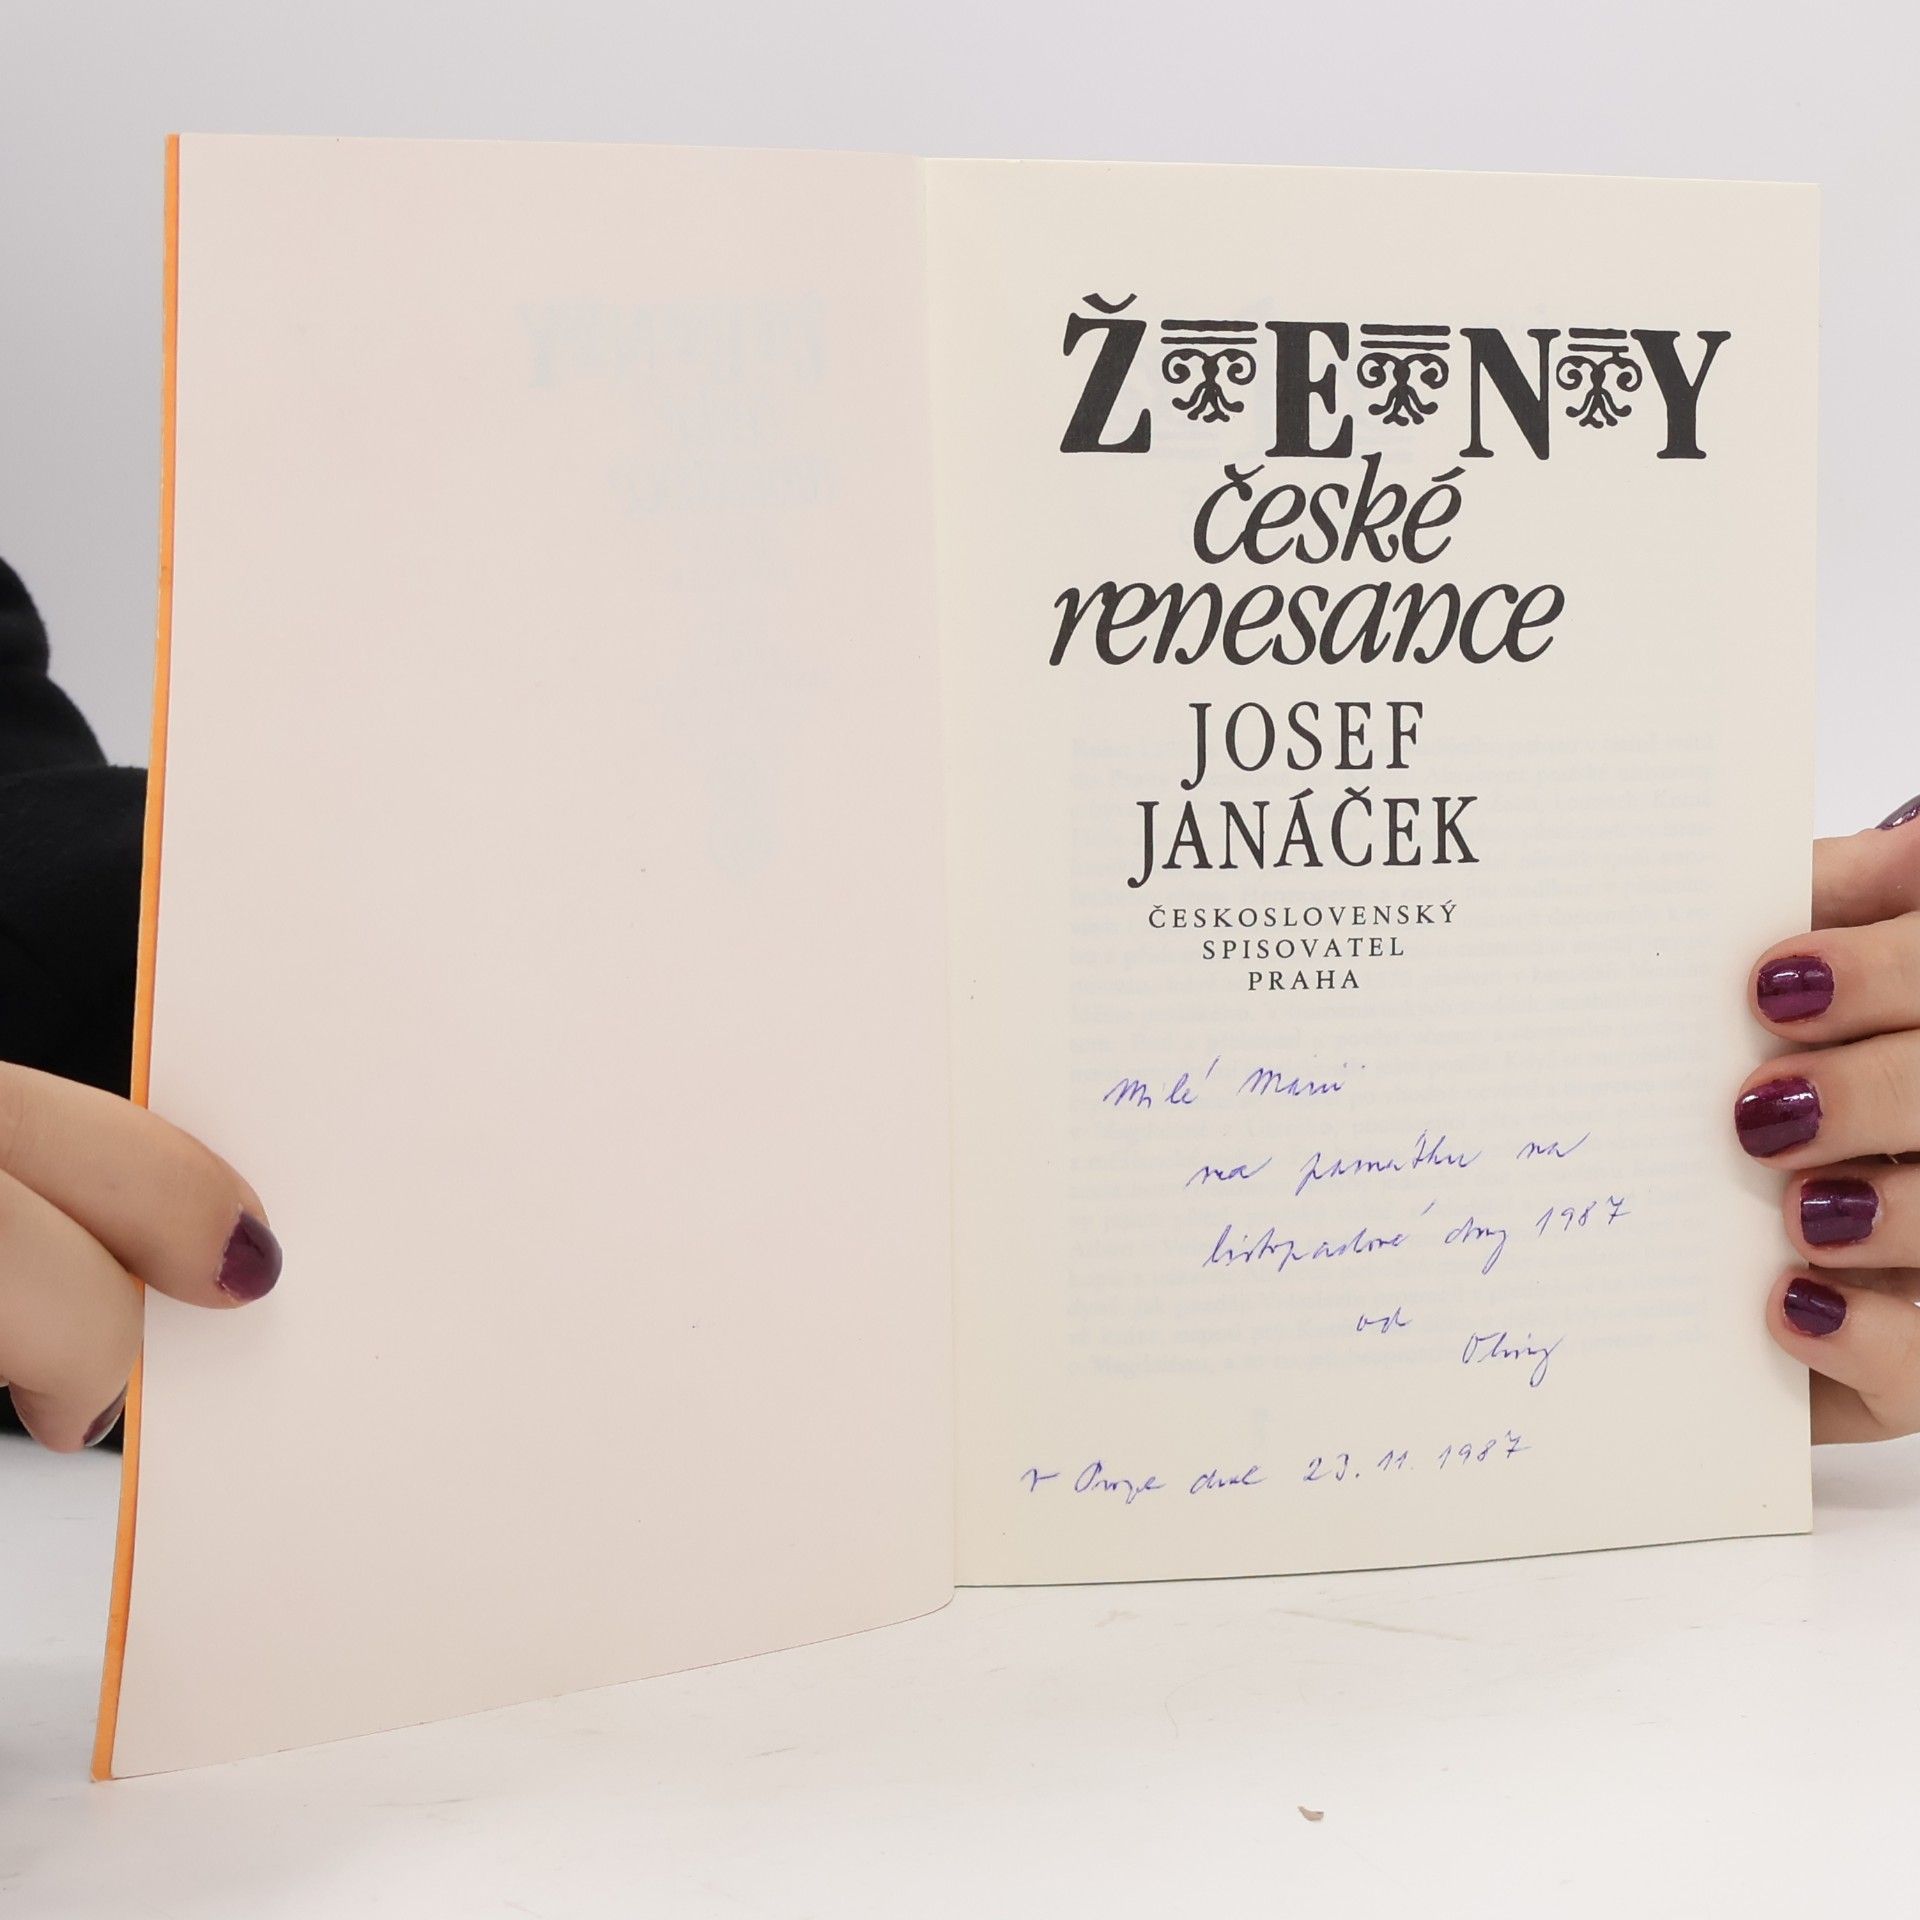 ŽENY
české
renesance
JOSEF
JANÁČEK
ČESKOSLOVENSKÝ
SPISOVATEL
PRAHA
Milé Marii
na památku na
listopadové dny 1987
od Olivy
v Praze dne 23. 11. 1987